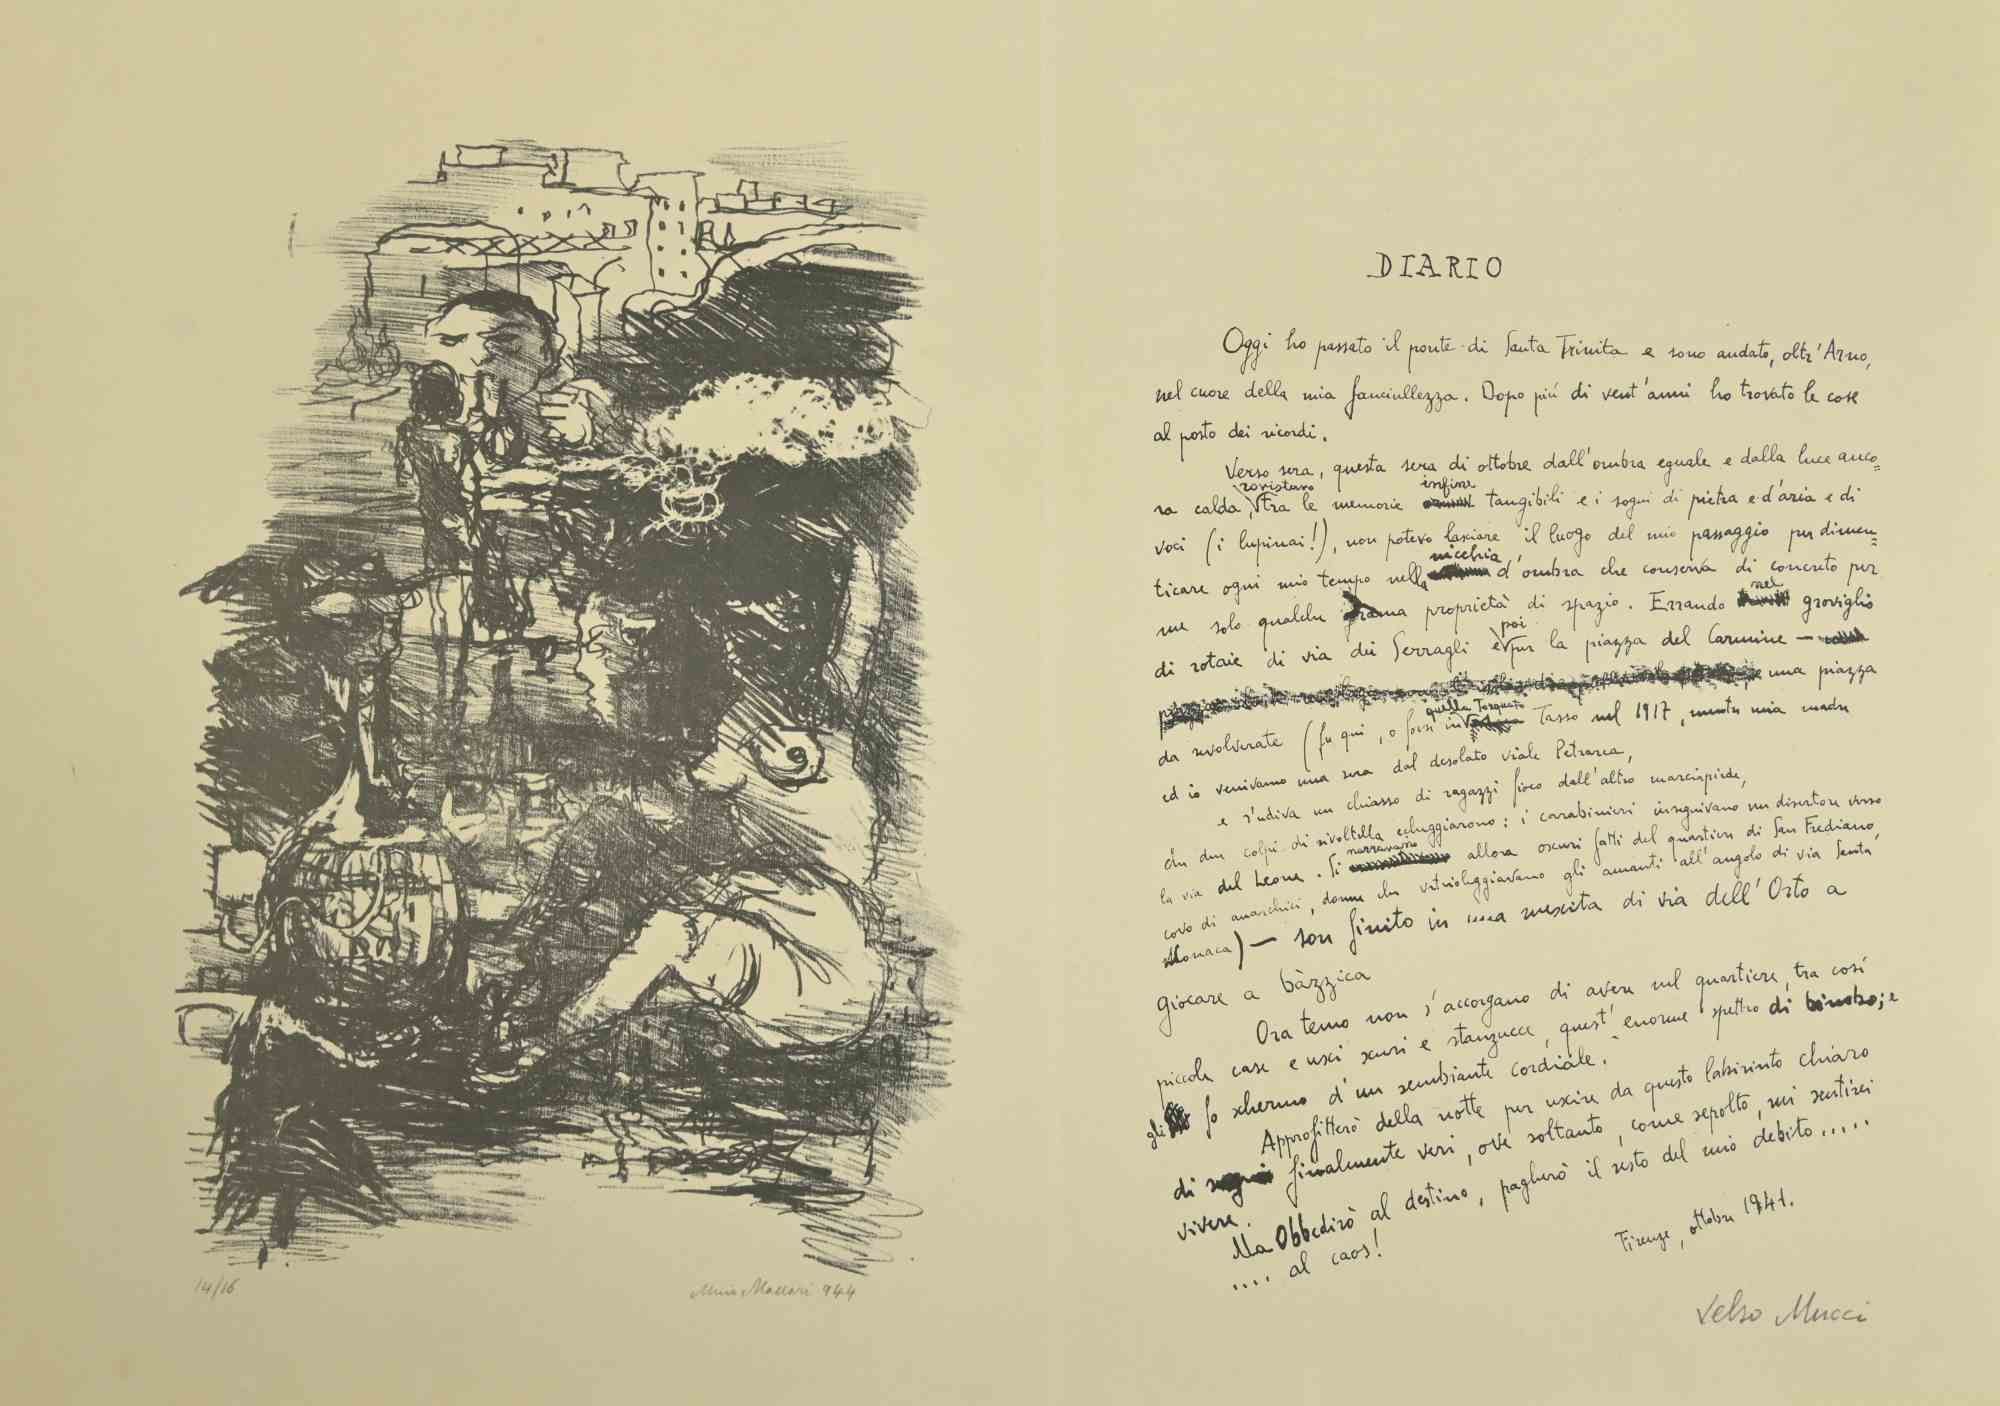 14/16
Mino Maccari 944
DIARIO
Oggi ho passato il ponte di Santa Trinita e sono andato, oltr'Arno,
nel cuore della mia fanciullezza. Dopo più di vent'anni ho trovato le cose
al posto dei ricordi.
Verso sera, questa sera di ottobre dall'ombra eguale e dalla luce anco=
ra calda, rovistavo tra le memorie infine tangibili e i sogni di pietra e d'aria e di
voci (i lupinai!), non potevo lasciare il luogo del mio passaggio per dimen=
ticare ogni mio tempo nella nicchia d'ombra che conserva di concreto per
me solo qualche grama proprietà di spazio. Errando nel groviglio
di rotaie di via dei Serragli e poi per la piazza del Carmine —
una piazza
da revolverate (fu qui, o forse in quella Torquato Tasso nel 1917, mentre mia madre
ed io venivamo una sera dal desolato viale Petrarca,
e s'udiva un chiasso di ragazzi fioco dall'altro marciapiede,
che due colpi di rivoltella echeggiarono: i carabinieri inseguivano un disertore verso
la via del Leone. Si narravano allora oscuri fatti del quartiere di San Frediano,
covo di anarchici, donne che vetrioleggiavano gli amanti all'angolo di via Santa
Monaca) — son finito in una mescita di via dell'Orto a
giocare a bàzzica
Ora temo non s'accorgano di avere nel quartiere, tra così
piccole case e usci scuri e stanzucce, quest'enorme spettro di bimbo; e
gli fo schermo d'un sembiante cordiale.
Approfitterò della notte per uscire da questo labirinto chiaro
di finalmente veri, ove soltanto, come sepolto, mi sentirei
vivere.
Ma Obbedirò al destino, pagherò il resto del mio debito.....
.... al caos!
Firenze, ottobre 1941.
Velso Mucci